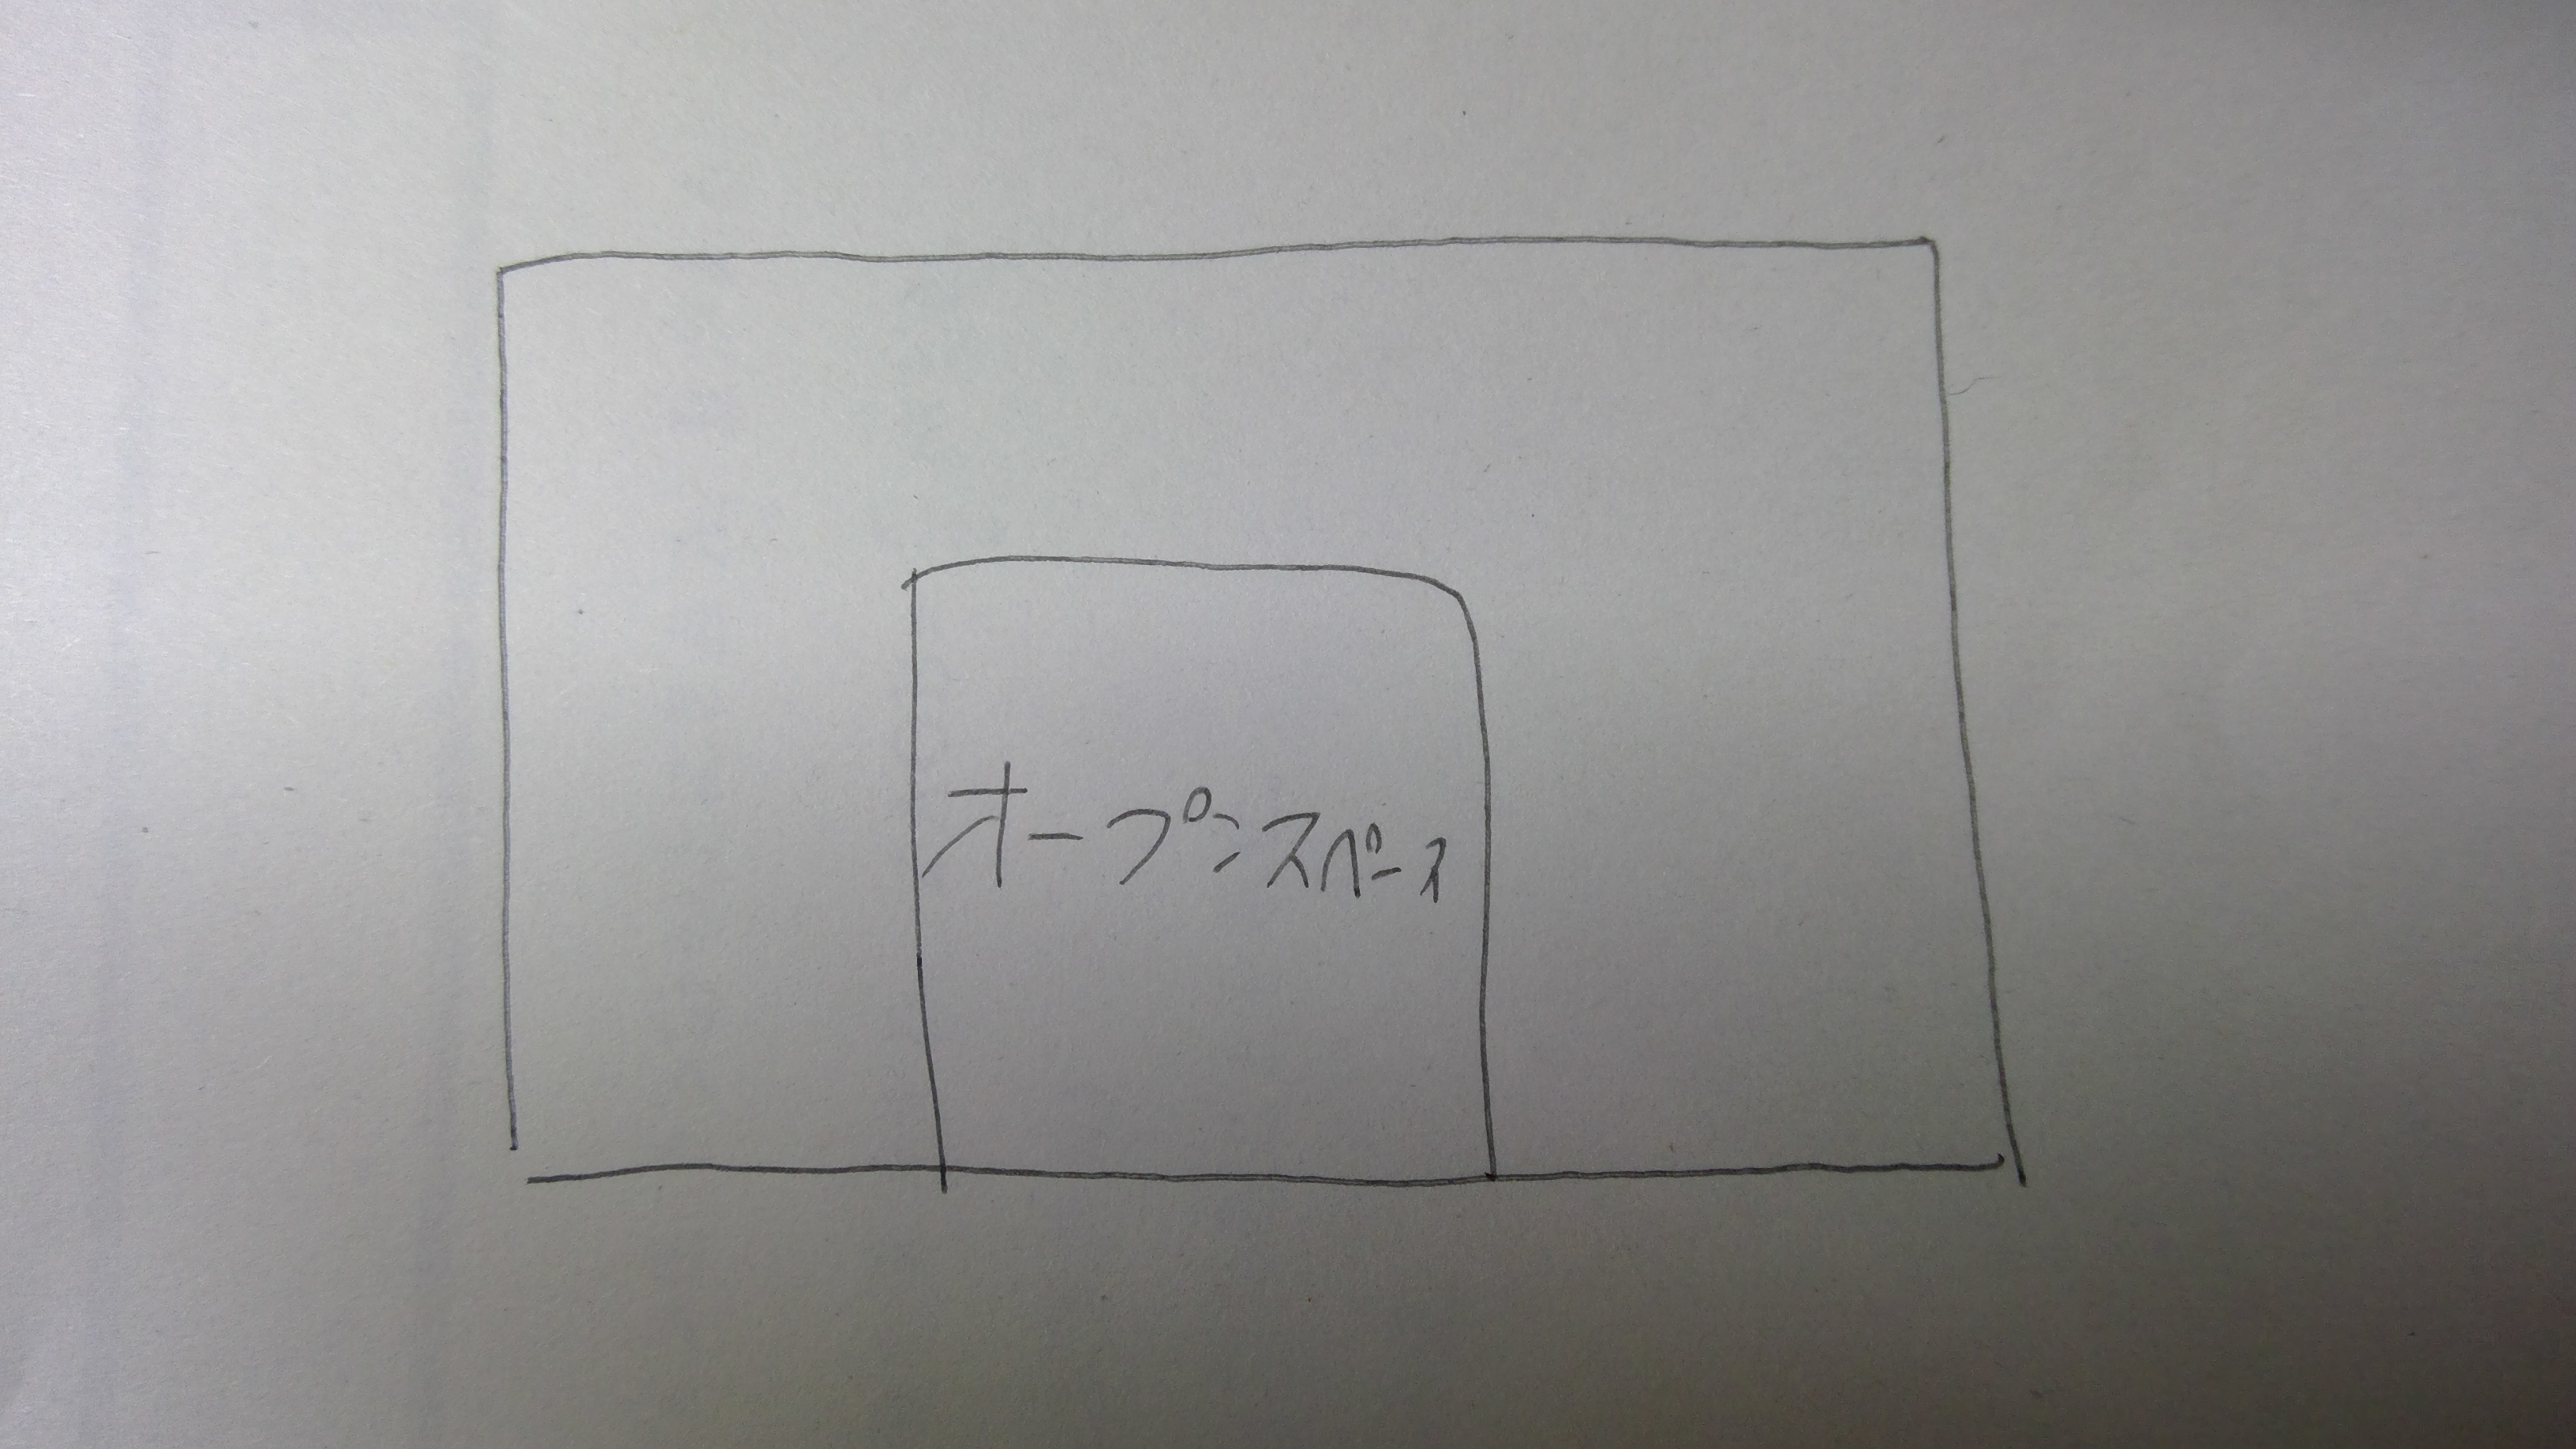 オープンスペース